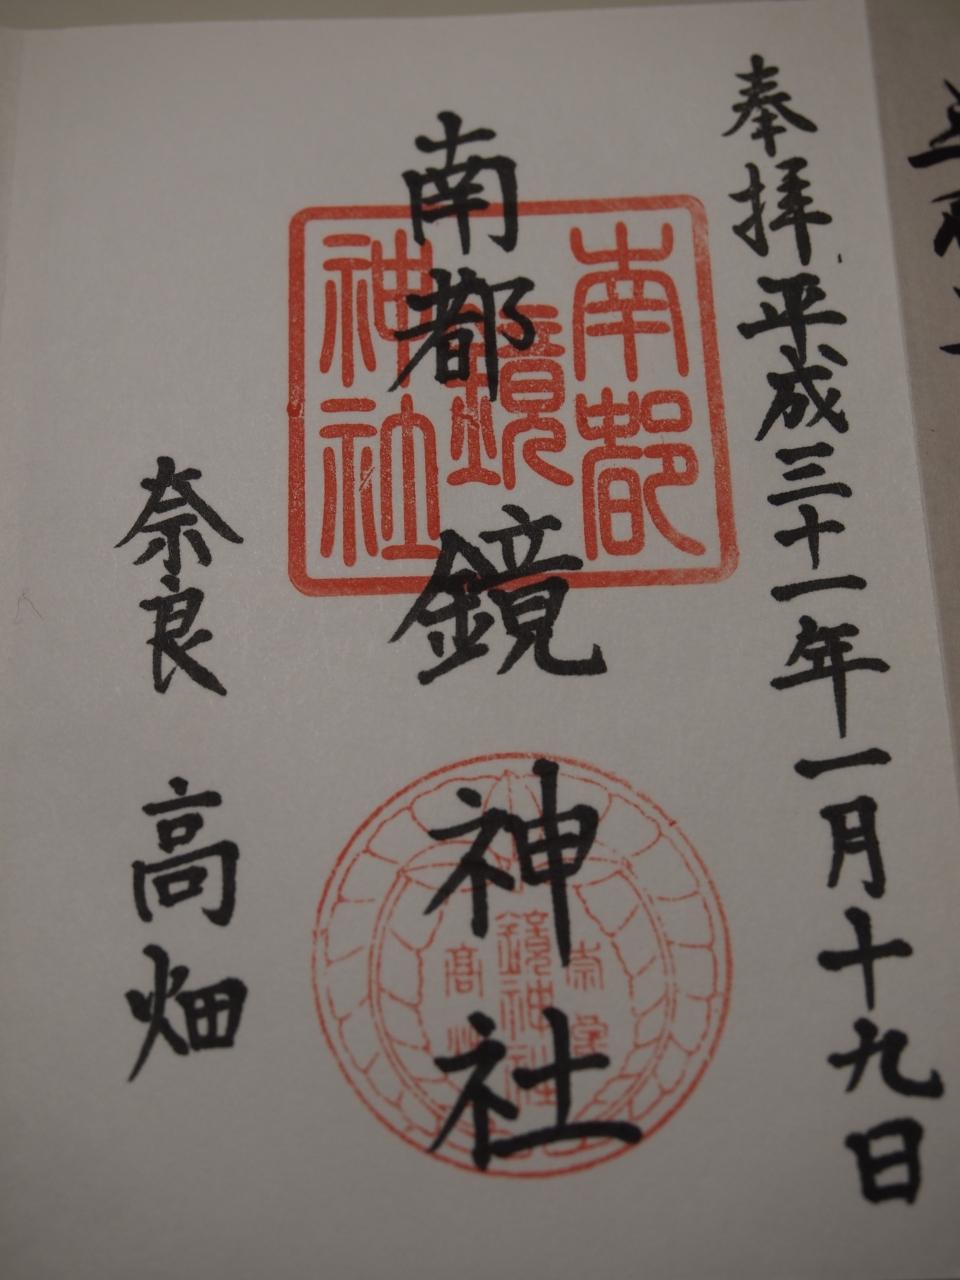 奉拝平成三十一年一月十九日
南都鏡神社
奈良 高畑
南都
鏡
神社
鏡神社
高